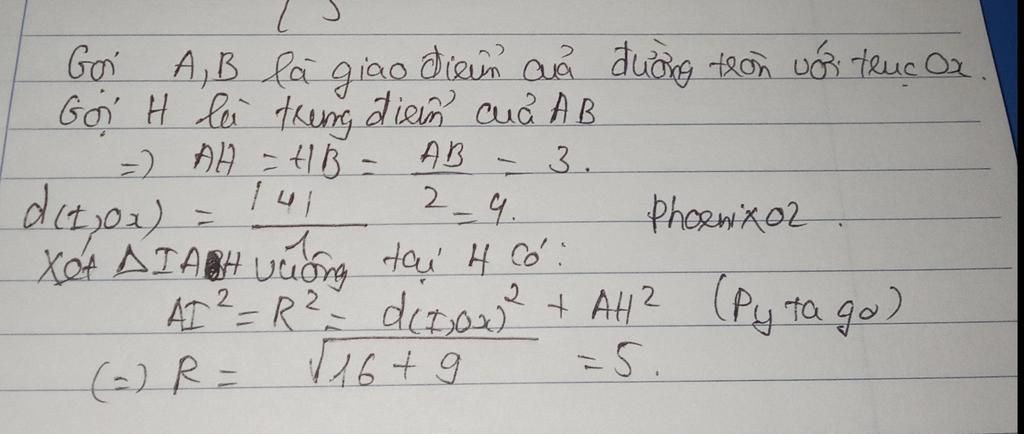 Gọi A, B là giao điểm của đường tròn với trục Ox.
Gọi H là trung điểm của AB
=) AH = HB = AB/2 = 3.
d(I,Ox) = |4|/1 = 4. Phoenix02.
Xét ΔIAH vuông tại H có:
AI² = R² = d(I,Ox)² + AH² (Pytago)
(=) R = √16 + 9 = 5.